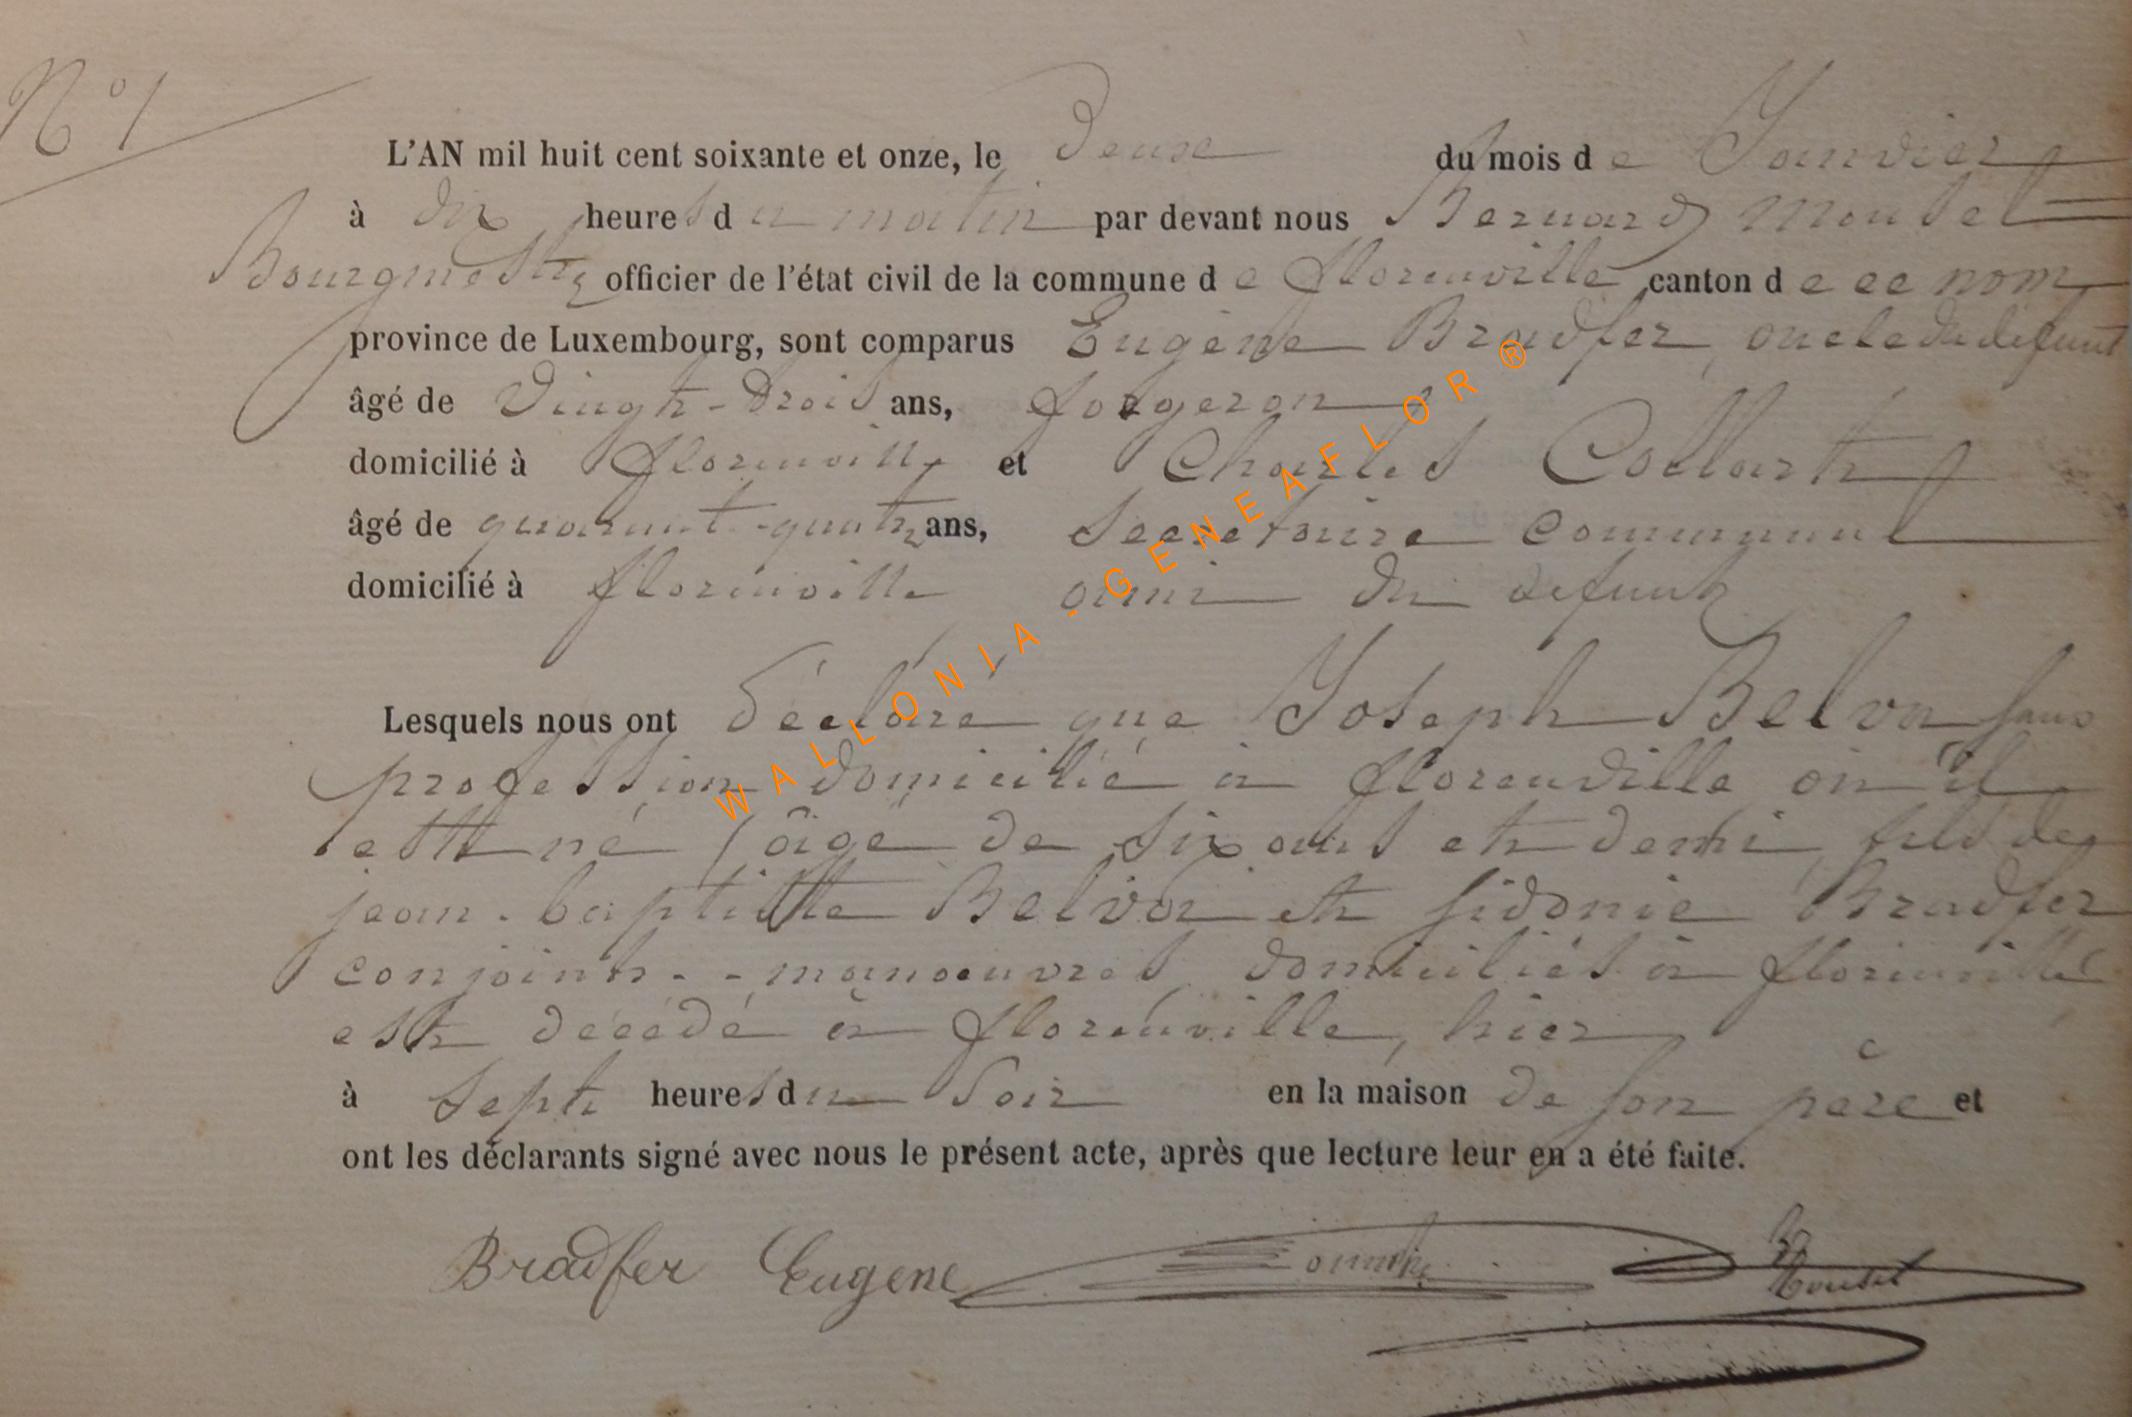 N° 1
L'AN mil huit cent soixante et onze, le Deux du mois de Janvier
à dix heures du matin par devant nous Bernard Mousel
Bourgmestre officier de l'état civil de la commune de florenville canton de ce nom
province de Luxembourg, sont comparus Eugène Bradfer, oncle du defunt
âgé de Vingt-trois ans, forgeron
domicilié à florenville et Charles Collart
âgé de quarante-quatre ans, Secretaire Communal
domicilié à florenville ami du defunt
Lesquels nous ont déclaré que Joseph Belva sans
profession domicilié à florenville où il
est né, âgé de six ans et demi, fils de
jean-baptiste Belva et sidonie Bradfer
conjoints - - manoeuvres, domiciliés à florenville
est décédé à florenville, hier
à sept heures du soir en la maison de son père et
ont les déclarants signé avec nous le présent acte, après que lecture leur en a été faite.
Bradfer Eugene
B Mousel
WALLONIA - GENEAFLOR ®